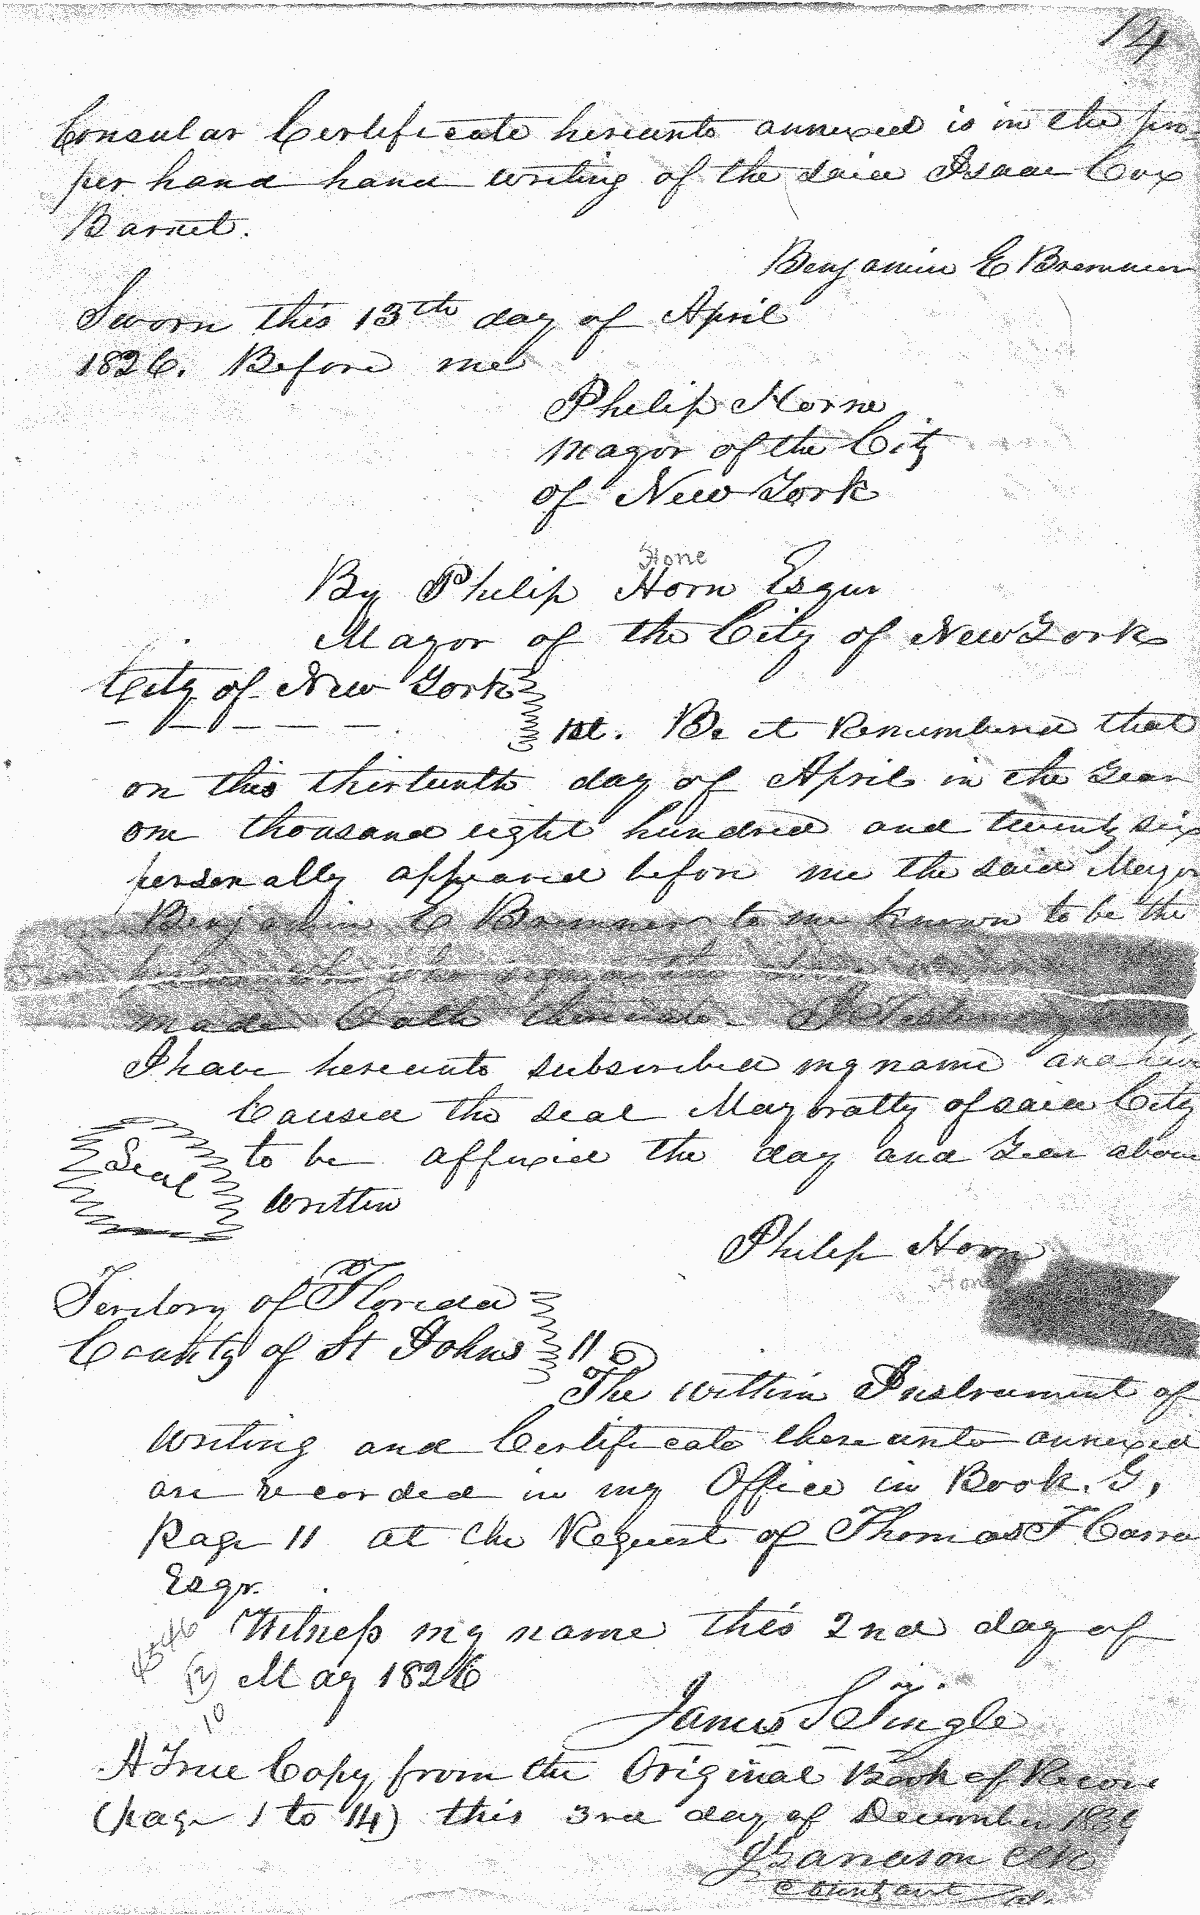 14
Consular Certificate hereunto annexed is in the pro-
per hand hand writing of the said Isaac Cox
Barnet.
Benjamin E Bremner
Sworn this 13th day of April
1826. Before me
Philip Horne
Mayor of the City
of New York
Hone
By Philip Horn Esqur
Mayor of the City of New York
City of New York
Be it Remembered that
on this thirteenth day of April in the Year
one thousand eight hundred and twenty six
personally appeared before me the said Mayor
Benjamin E Bremner to me known to be the
who signed the
made Oath thereunto. I Testimony
I have hereunto subscribed my name and have
Caused the seal Mayoralty of said City
Seal to be affixed the day and Year above
written
Philip Horn
Hone
Territory of Florida
County of St Johns
The within Instrument of
writing and Certificate thereunto annexed
are recorded in my Office in Book. G,
Page 11 at the Request of Thomas F Carra
Esqr.
Witness my name this 2nd day of
May 1826
4546
12
10
James S Tingle
A True Copy from the Original Book of Record
(page 1 to 14) this 3rd day of December
Clk